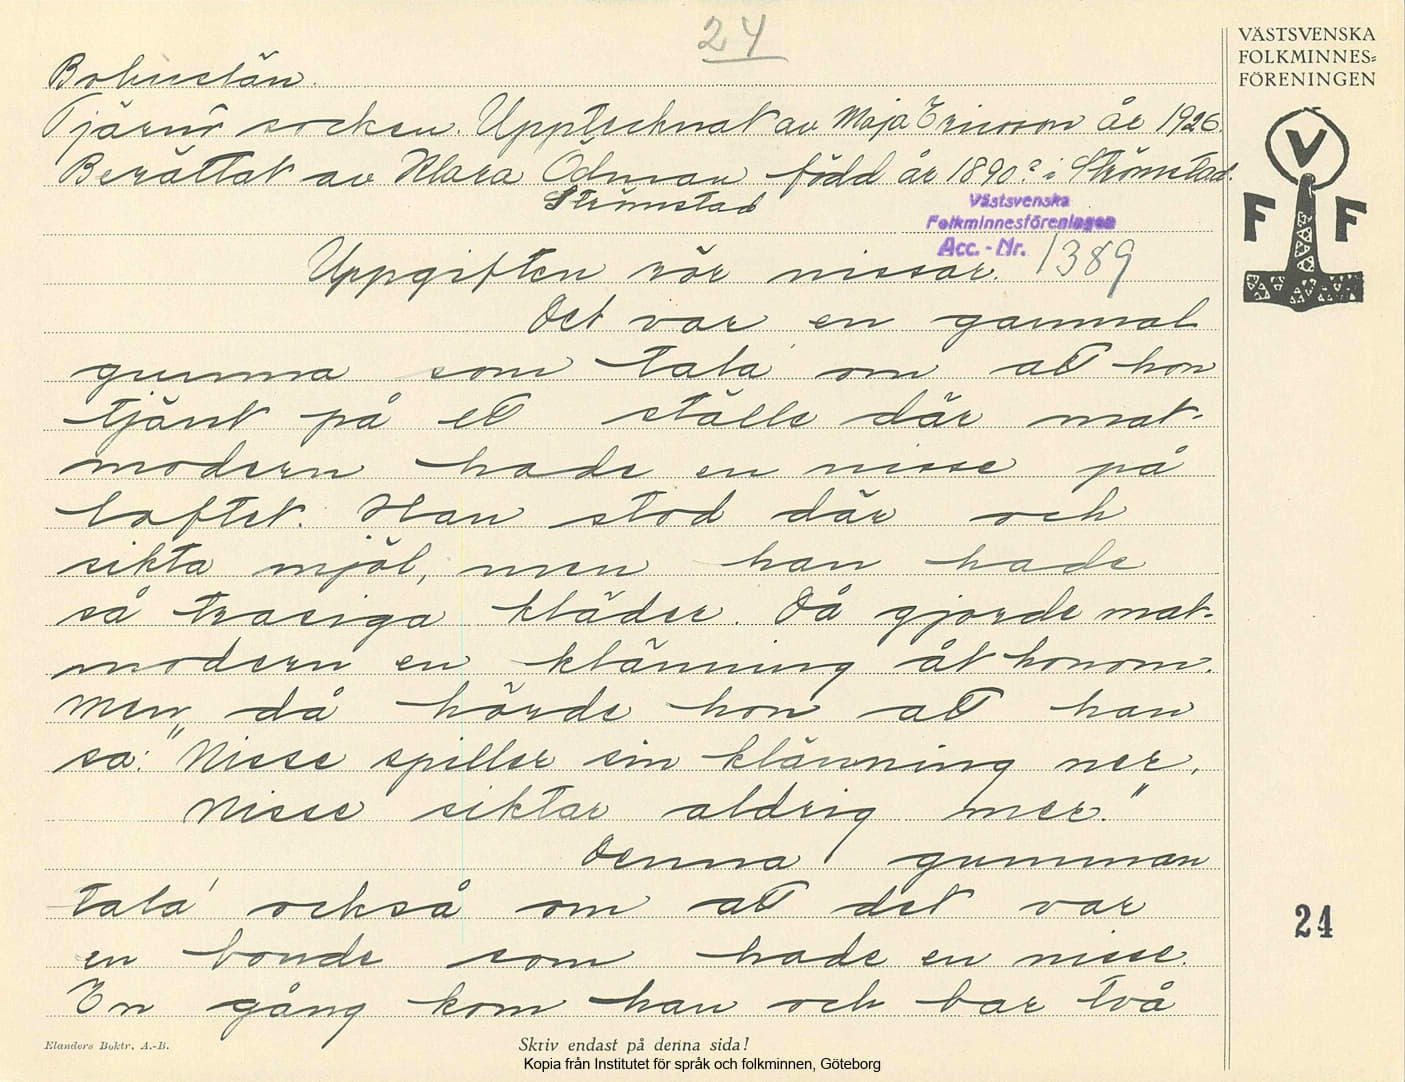 24
VÄSTSVENSKA
FOLKMINNES=
FÖRENINGEN
Bohuslän.
Tjärnö socken. Upptecknat av Maja Ericson år 1926.
Berättat av Klara Ödman född år 1890? i Strömstad.
Strömstad
Västsvenska
Folkminnesföreningen
Acc. - Nr. 1389
V
F F
Uppgiften rör nissar.
Det var en gammal
gumma som tala' om att hon
tjänt på ett ställe där mat-
modern hade en nisse på
loftet. Han stod där och
sikta mjöl, men han hade
så trasiga kläder. Då gjorde mat-
modern en klänning åt honom.
Men då hörde hon att han
sa: "Nisse spiller sin klänning ner,
Nisse siktar aldrig mer."
Denna gumman
tala' också om att det var
en bonde som hade en nisse.
En gång kom han och bar två
24
Elanders Boktr. A.-B.
Skriv endast på denna sida!
Kopia från Institutet för språk och folkminnen, Göteborg